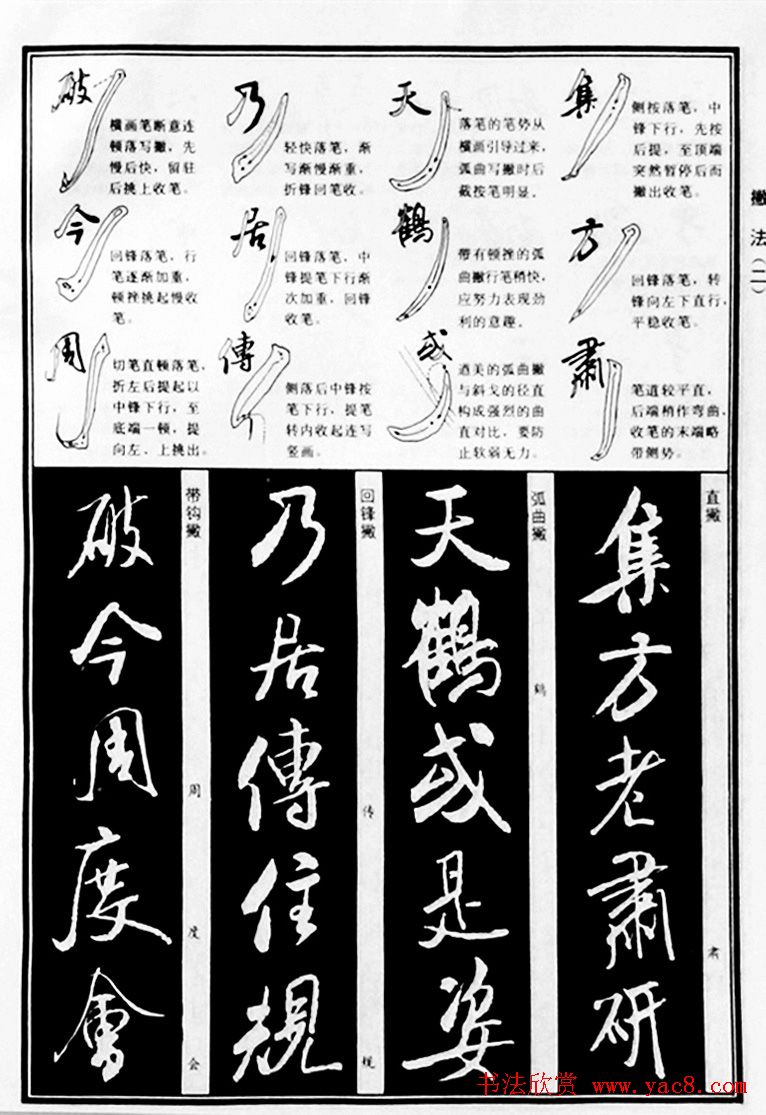 撇法(二)
集
侧按落笔，中
锋下行，先按
后提，至顶端
突然暂停后而
撇出收笔。
方
回锋落笔，转
锋向左下直行，
平稳收笔。
肅
笔道较平直，
后端稍作弯曲，
收笔的末端略
带侧势。
天
落笔的笔势从
横画引导过来，
弧曲写撇时后
截按笔明显。
鶴
带有顿挫的弧
曲撇行笔稍快，
应努力表现劲
利的意趣。
或
遒美的弧曲撇
与斜戈的径直
构成强烈的曲
直对比，要防
止软弱无力。
乃
轻快落笔，渐
写渐慢渐重，
折锋回笔收。
居
回锋落笔，中
锋提笔下行渐
次加重，回锋
收笔。
傳
侧落后中锋按
笔下行，提笔
转内收起连写
竖画。
破
横画笔断意连
顿落写撇，先
慢后快，留驻
后挑上收笔。
今
回锋落笔，行
笔逐渐加重，
顿挫挑起慢收
笔。
周
切笔直顿落笔，
折左后提起以
中锋下行，至
底端一顿，提
向左、上挑出。
直撇
肃
集方老肅研
弧曲撇
鹤
天鶴或是姿
回锋撇
传
规
乃居傳住規
带钩撇
周
度
会
破今周度會
书法欣赏 www.yac8.com